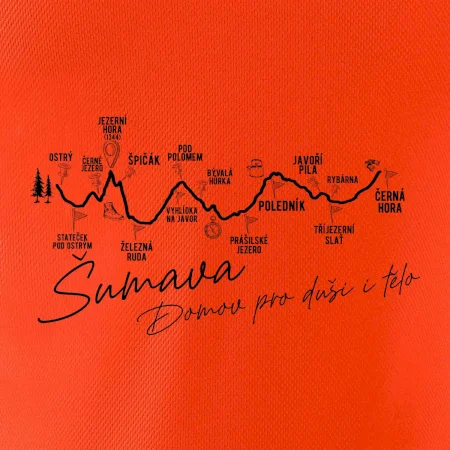 JEZERNÍ
HORA
(1344)
OSTRÝ
ČERNÉ
JEZERO
ŠPIČÁK
POD
POLOMEM
BÝVALÁ
HŮRKA
JAVOŘÍ
PILA
RYBÁRNA
ČERNÁ
HORA
STATEČEK
POD OSTRÝM
ŽELEZNÁ
RUDA
VYHLÍDKA
NA JAVOR
PRÁŠILSKÉ
JEZERO
POLEDNÍK
TŘÍJEZERNÍ
SLAŤ
Šumava
Domov pro duši i tělo